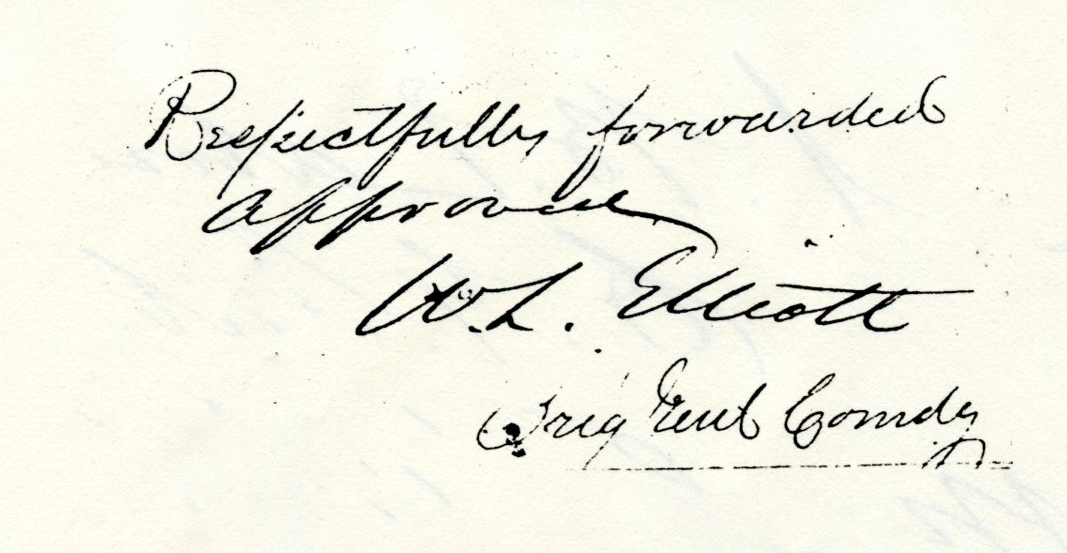 Respectfully forwarded
approved
W. L. Elliott
Brig Genl Comdg